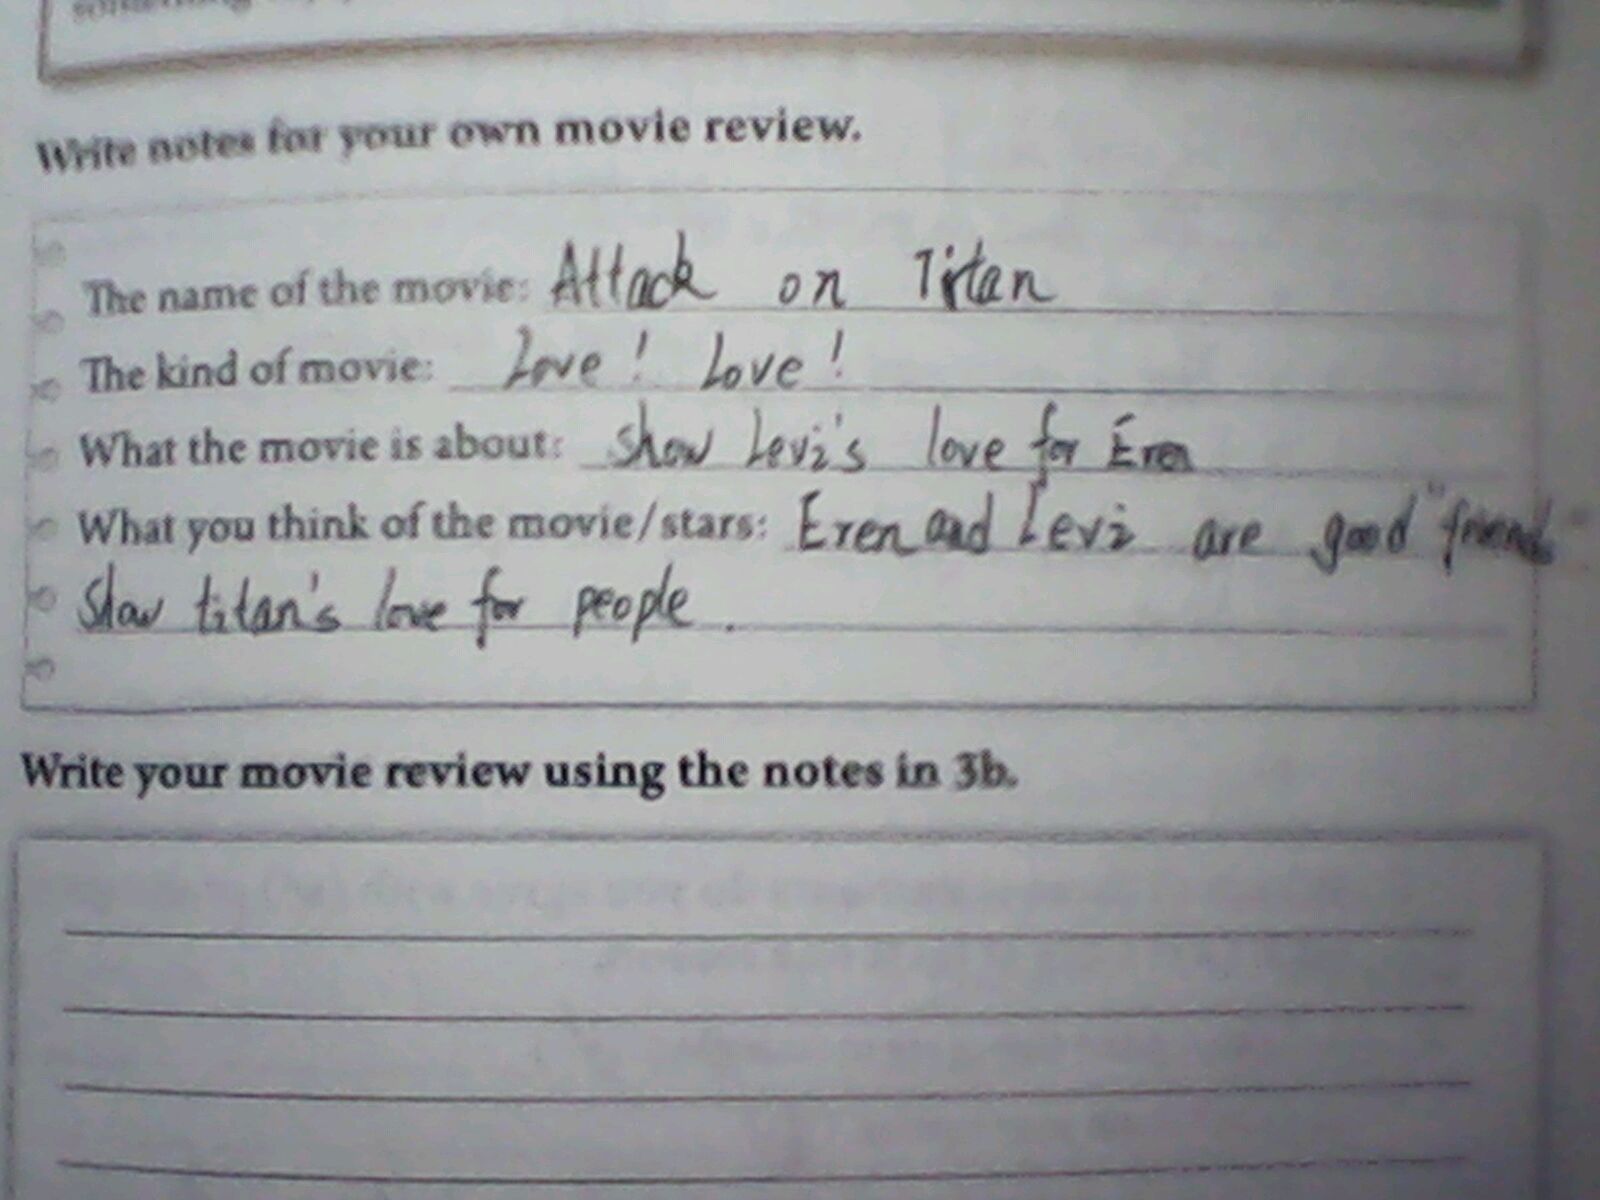 Write notes for your own movie review.
The name of the movie: Attack on Titan
The kind of movie: Love! Love!
What the movie is about: show Levi's love for Eren
What you think of the movie/stars: Eren and Levi are good "friends"
Show titan's love for people.
Write your movie review using the notes in 3b.